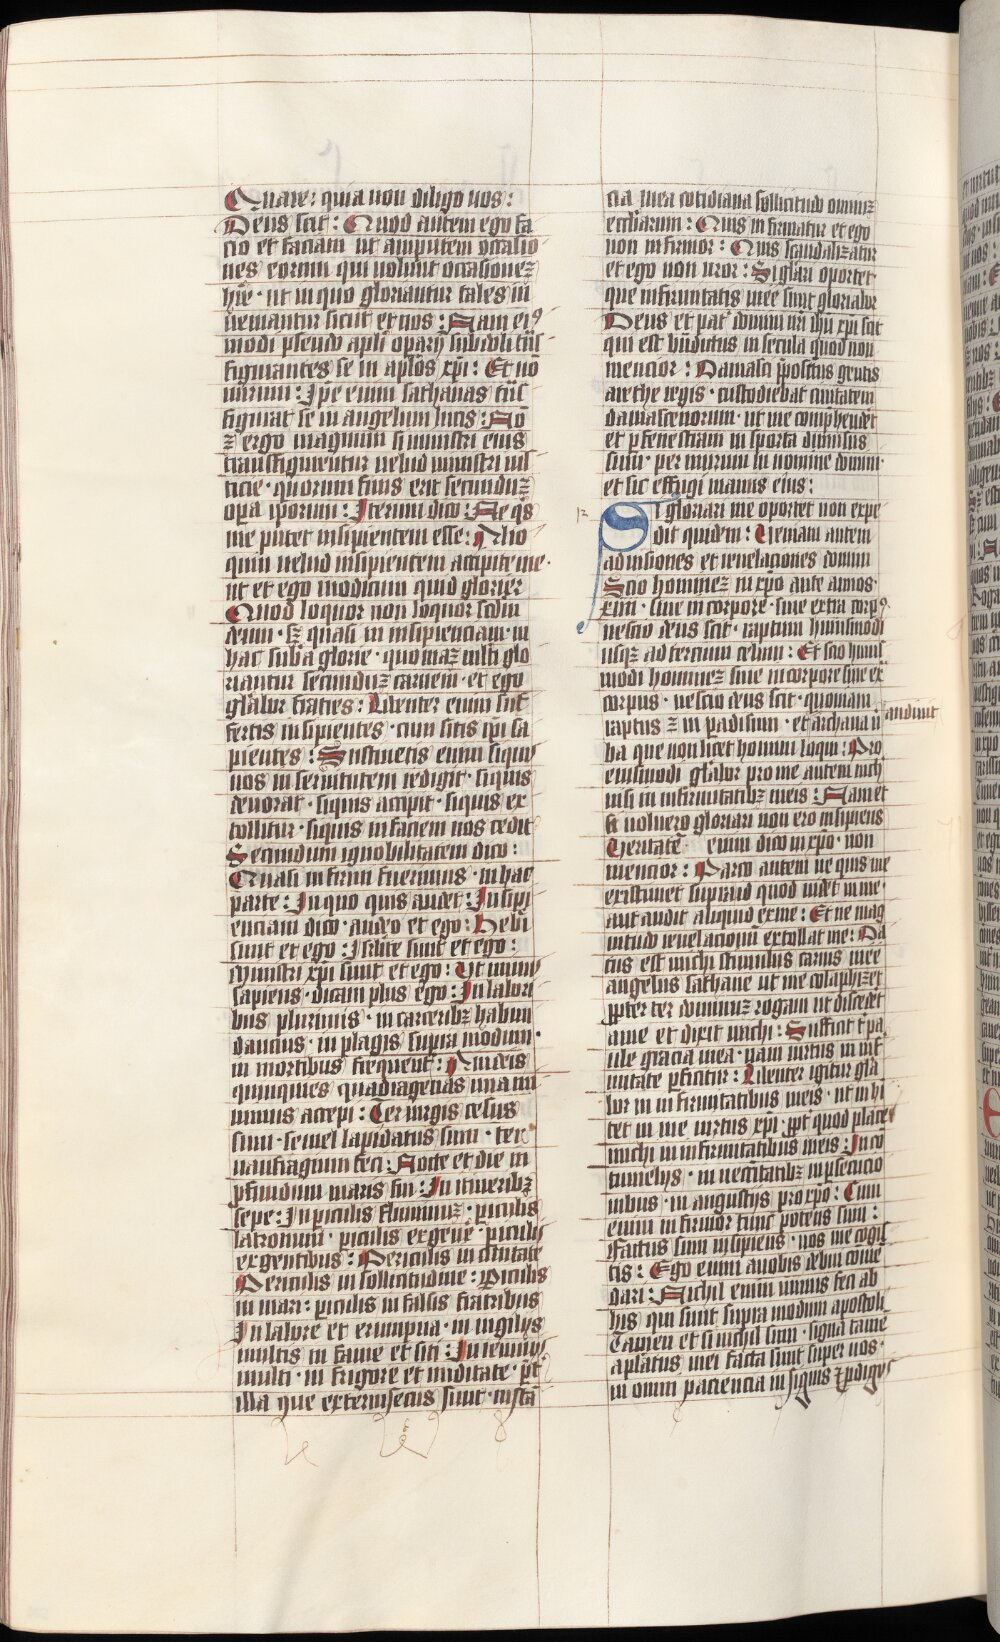 Quare : quia non diligo vos :
Deus scit : Quod autem ego fa
cio et faciam ut amputem occasio
nes eorum qui volunt occasionez
h̄re · ut in quo gloriantur tales in
veniantur sicut et nos : Nam eiꝰ
modi pseudo apl̄i operarij subdoli tn̄s
figurantes se in apl̄os xp̄i : Et nō
mirum : Ip̄e enim sathanas tn̄s
figurat se in angelum lucis : Nō
ē ergo magnum si ministri eius
transfigurentur velud ministri ius
ticie · quorum finis erit secunduz
opa ip̄orum : Iterum dico : Ne q̄s
me putet insipientem esse : Alio
quin velud insipientem accipite me ·
ut et ego modicum quid glorier
Quod loquor non loquor scd̄m
deum · sꝫ quasi in insipienciam in
hac sub̄a glorie · quoniaz multi glo
riantur secunduz carnem · et ego
gl̄abor fratres : Libenter enim suf
fertis insipientes · cum sitis ip̄i sa
pientes : Sustinetis enim siquis
vos in servitutem redigit · siquis
devorat · siquis accipit · siquis ex
tollitur · siquis in faciem vos cedit
Secundum ignobilitatem dico :
Quasi infirmi fuerimus · in hac
parte : In quo quis audet : In sipi
enciam dico · audeo et ego : Hebr̄i
sunt et ego : Isr̄lite sunt et ego :
Ministri xp̄i sunt et ego : Ut minus
sapiens · dicam plus ego : In labori
bus plurimis · in carceribꝫ habun
dancius · in plagis supra modum ·
in mortibus frequent̄ : A iudeis
quinquies quadragenas una mi
nimus accepi : Ter virgis cesus
sum · semel lapidatus sum · ter
naufragium feci : Nocte et die in
ꝓfundum maris fui : In itineribꝫ
sepe : In piculis fluminuz · piculis
latronum · piculis ex gene · piculis
ex gentibus : Periculis in civitate
Periculis in sollicitudine : Piculis
in mari : piculis in falsis fratribus
In labore et erumpna · in vigilijs
multis in fame et siti : In ieiunijs
multi · in frigore et nuditate · p̄t
illa que extrinsecus sunt · insta
cia mea cotidiana sollicitudo omniuz
ecclīarum : Quis infirmatur et ego
non infirmor : Quis scandalizatur
et ego non uror : Si gl̄ari oportet
que infirmitatis mee sunt gloriabor
Deus et pat̄ domini nr̄i ih̄u xp̄i scit
qui est b̄ndictus in secula quod non
mencior : Damasci p̄positus gentis
arethe regis · custodiebat civitatem
damascenorum · ut me comp̄henderet
et ꝑ fenestram in sporta dimissus
sum · per murum in nomine domini ·
et sic effugi manus eius :
12 Si gloriari me oportet non expe
dit quidem : Veniam autem
ad visiones et revelaciones domini
Scio hominez in xp̄o ante annos
xiiii · sive in corpore · sive extra corpꝰ
nescio deus scit · raptum huiusmodi
usqꝫ ad tercium celum : Et scio huius
modi hominez sive in corpore sive ex̄
corpus · nescio deus scit · quoniam
raptus ē in padisum · et archana v̄ audivit
ba que non licet homini loqui : Pro
eiusmodi gl̄abor pro me autem nich
nisi in infirmitatibꝫ meis : Nam et
si voluero gloriari non ero insipiens
Veritatē enim dico in xp̄o · non
mencior : Parco autem ne quis me
existimet supra id quod videt in me ·
aut audit aliquid ex me : Et ne mag
nitudo revelacionū extollat me : Da
tus est michi stimulus carnis mee
angelus sathane ut me colaphizet
ꝓpter ter dominuz rogavi ut discedet
a me et dixit michi : Sufficit t̄ pa
ule gracia mea · nam virtus in inf̄
mitate ꝓficitur : Libenter igitur gl̄a
bor in infirmitatibus meis · ut in hi
tet in me virtus xp̄i · ꝓpt̄ quod placet
michi in infirmitatibus meis : In co
tumelijs · in necessitatibꝫ in ꝑsecucio
nibus · in angustijs pro xp̄o : Cum
enim infirmor tunc potens sum :
Factus sum insipiens · vos me coegis
tis : Ego enim a vobis debui come
dari : Nichil enim minus feci ab
his qui sunt supra modum apostoli
Tamen et si nichil sum · signa tamē
ap̄latus mei facta sunt super vos ·
in omni paciencia in signis ꝓdigijs